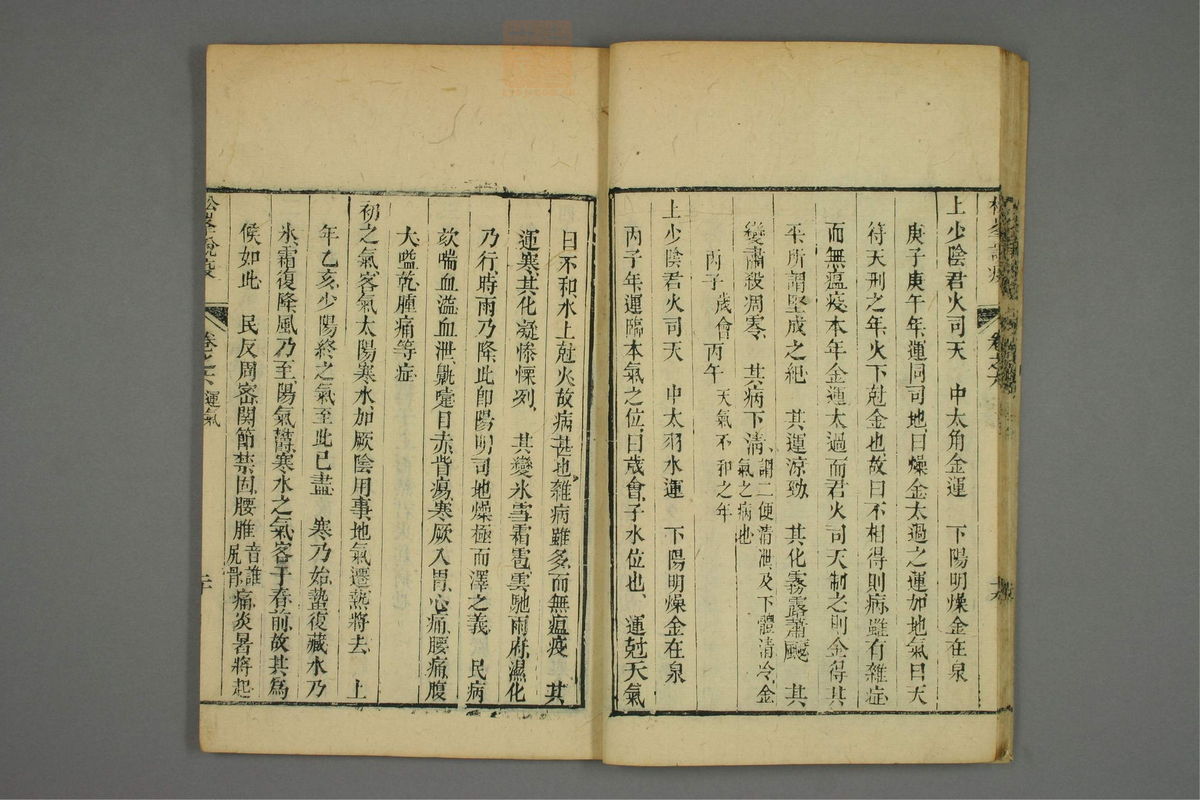 上少陰君火司天　中太角金運　下陽明燥金在泉
庚子庚午年運同司地曰燥金太過之運加地氣曰天
符天刑之年火下尅金也故曰不相得則病雖有雜症
而無瘟疫本年金運太過而君火司天制之則金得其
平所謂堅成之紀　其運涼勁　其化霧露蕭飋　其
變肅殺凋零　其病下清
謂二便清泄及下體清冷金
氣之病也
丙子　歲會　丙午　天氣不和之年
上少陰君火司天　中太羽水運　下陽明燥金在泉
丙子年運臨本氣之位曰歲會子水位也　運尅天氣
曰不和水上尅火故病甚也雜病雖多而無瘟疫　其
運寒其化凝慘慄冽　其變氷雪霜雹雲馳雨府濕化
乃行時雨乃降此即陽明司地燥極而澤之義　民病
欬喘血溢血泄鼽嚏目赤眥瘍寒厥入胃心痛腰痛腹
大嗌乾腫痛等症
初之氣客氣太陽寒水加厥陰用事地氣遷熱將去　上
年乙亥少陽終之氣至此已盡　寒乃始蟄復藏水乃
氷霜復降風乃至陽氣鬱寒水之氣客于春前故其為
候如此　民反周密関節禁固腰脽
音誰
尻骨
痛炎暑將起
松峯說疫
卷之六　運氣
二十